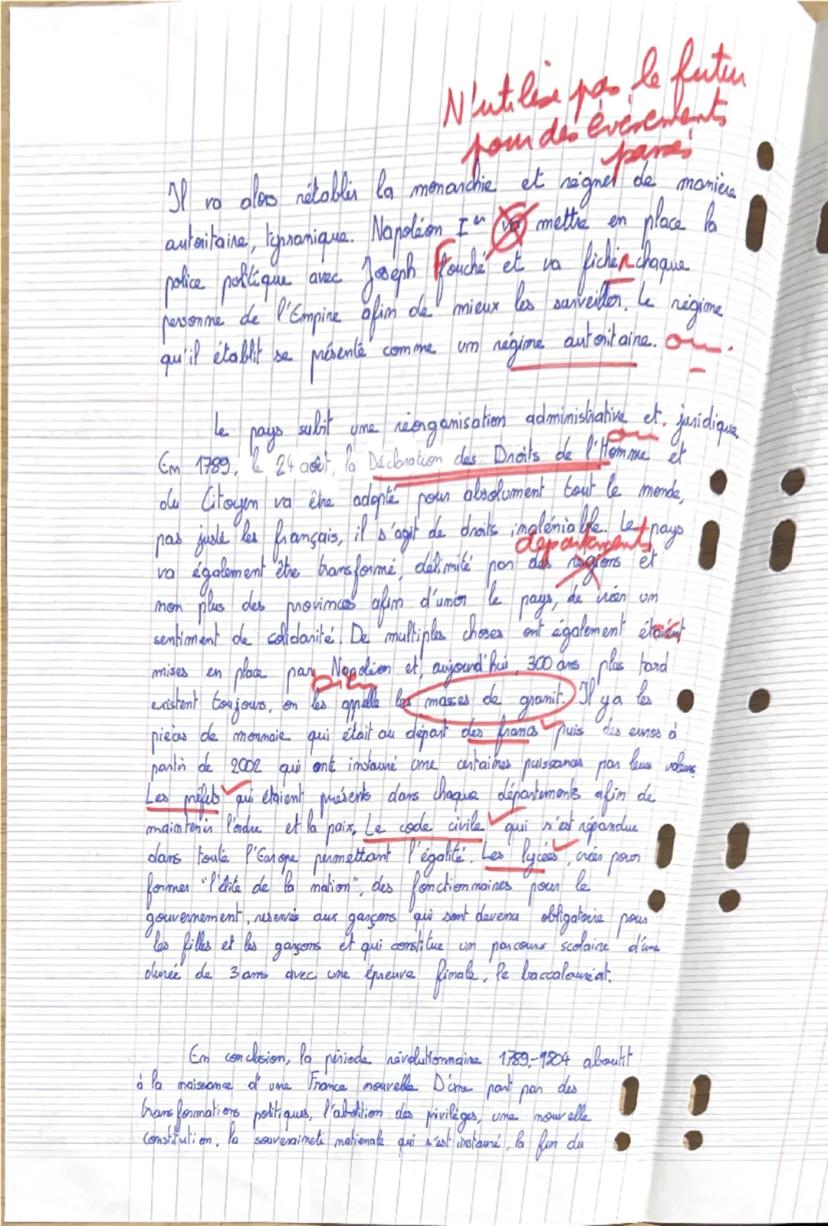 N'utilise pas le futur
pour des évènements
passés
Il va alors rétablir la monarchie et régner de manière
autoritaire, tyrannique. Napoléon Ier va mettre en place la
police politique avec Joseph Fouché et va ficher chaque
personne de l'Empire afin de mieux les surveiller. Le régime
qu'il établit se présente comme un régime autoritaire. oui.
Le pays subit une réorganisation administrative et juridique
oui
En 1789, le 24 août, la Déclaration des Droits de l'Homme et
du Citoyen va être adopté pour absolument tout le monde,
pas juste les français, il s'agit de droits inaléniable. Le pays
départements
va également être transformé, délimité par des régions et
non plus des provinces afin d'unir le pays, de créer un
sentiment de solidarité. De multiples choses ont également étaient
mises en place par Napoléon et, aujourd'hui, 300 ans plus tard
Bien
existent toujours, on les appelle les masses de granit. Il y a les
pièces de monnaie qui était au départ des francs puis des euros à
partir de 2002 qui ont instauré une certaines puissances par leur valeurs
Les préfets qui étaient présents dans chaque départements afin de
maintenir l'ordre et la paix. Le code civile qui s'est répandue
dans toute l'Europe permettant l'égalité. Les lycées, créés pour
former "l'élite de la nation", des fonctionnaires pour le
gouvernement, réservés aux garçons qui sont devenu obligatoire pour
les filles et les garçons et qui constitue un parcours scolaire d'une
durée de 3 ans avec une épreuve finale, le baccalauréat.
En conclusion, la période révolutionnaire 1789-1804 aboutit
à la naissance d'une France nouvelle D'une part par des
transformations politiques, l'abolition des privilèges, une nouvelle
constitution, la souveraineté nationale qui s'est instauré, la fin du